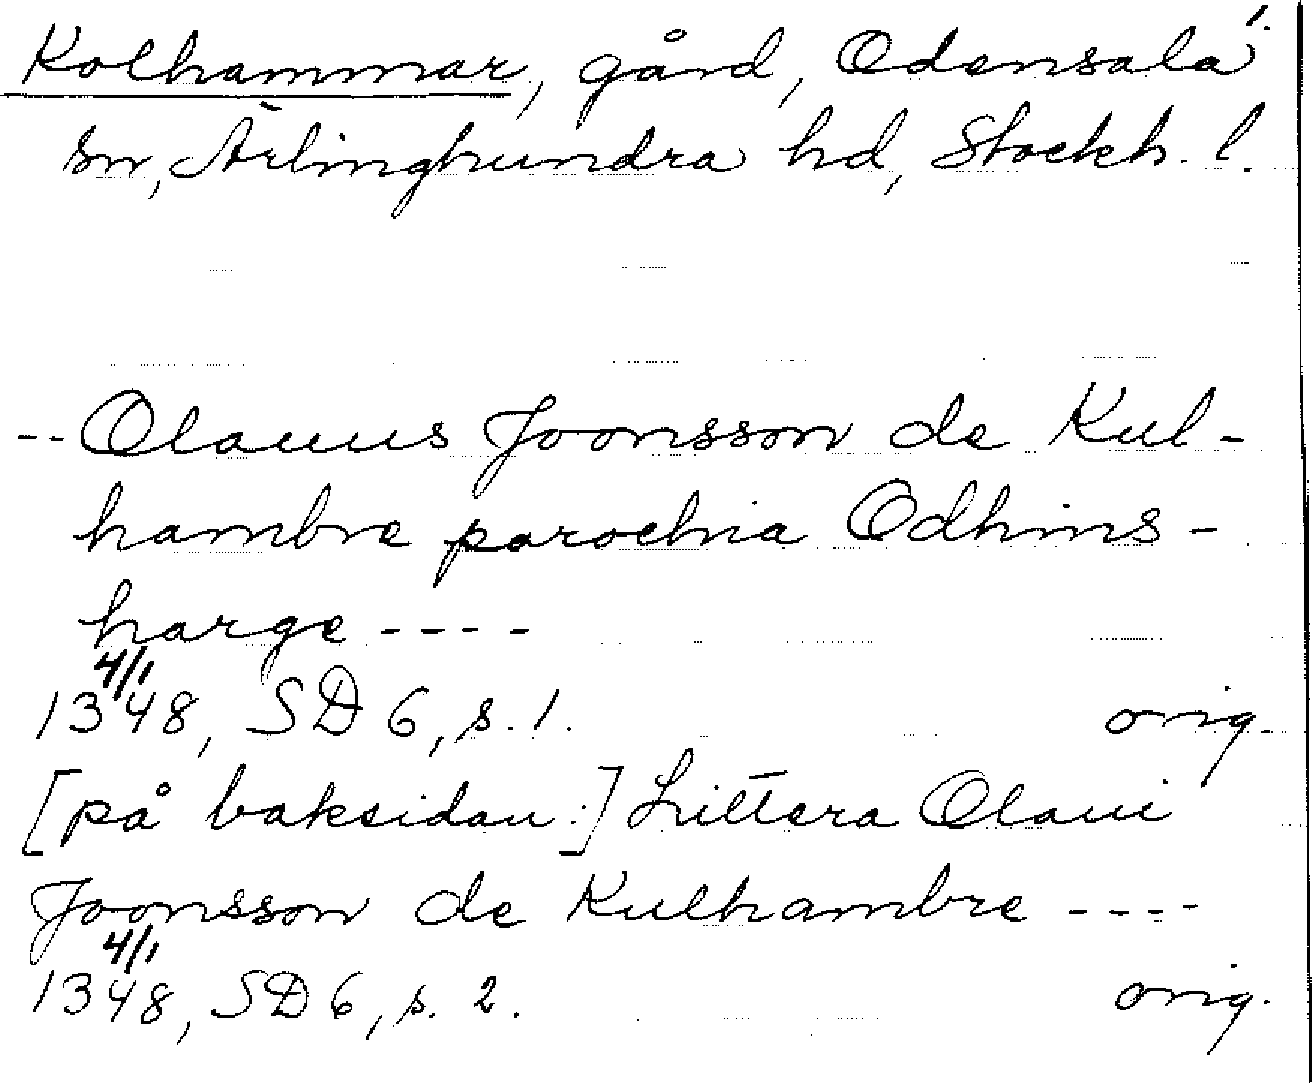 Kolhammar, gård, Odensala 1.
sn, Ärlinghundra hd, Stockh. l.
-- Olauus Joonsson de Kul-
hambre parochia Odhins-
harge ----
4/1
1348, SD 6, s. 1. orig.
[på baksidan:] Littera Olaui
Joonsson de Kulhambre ----
4/1
1348, SD 6, s. 2. orig.